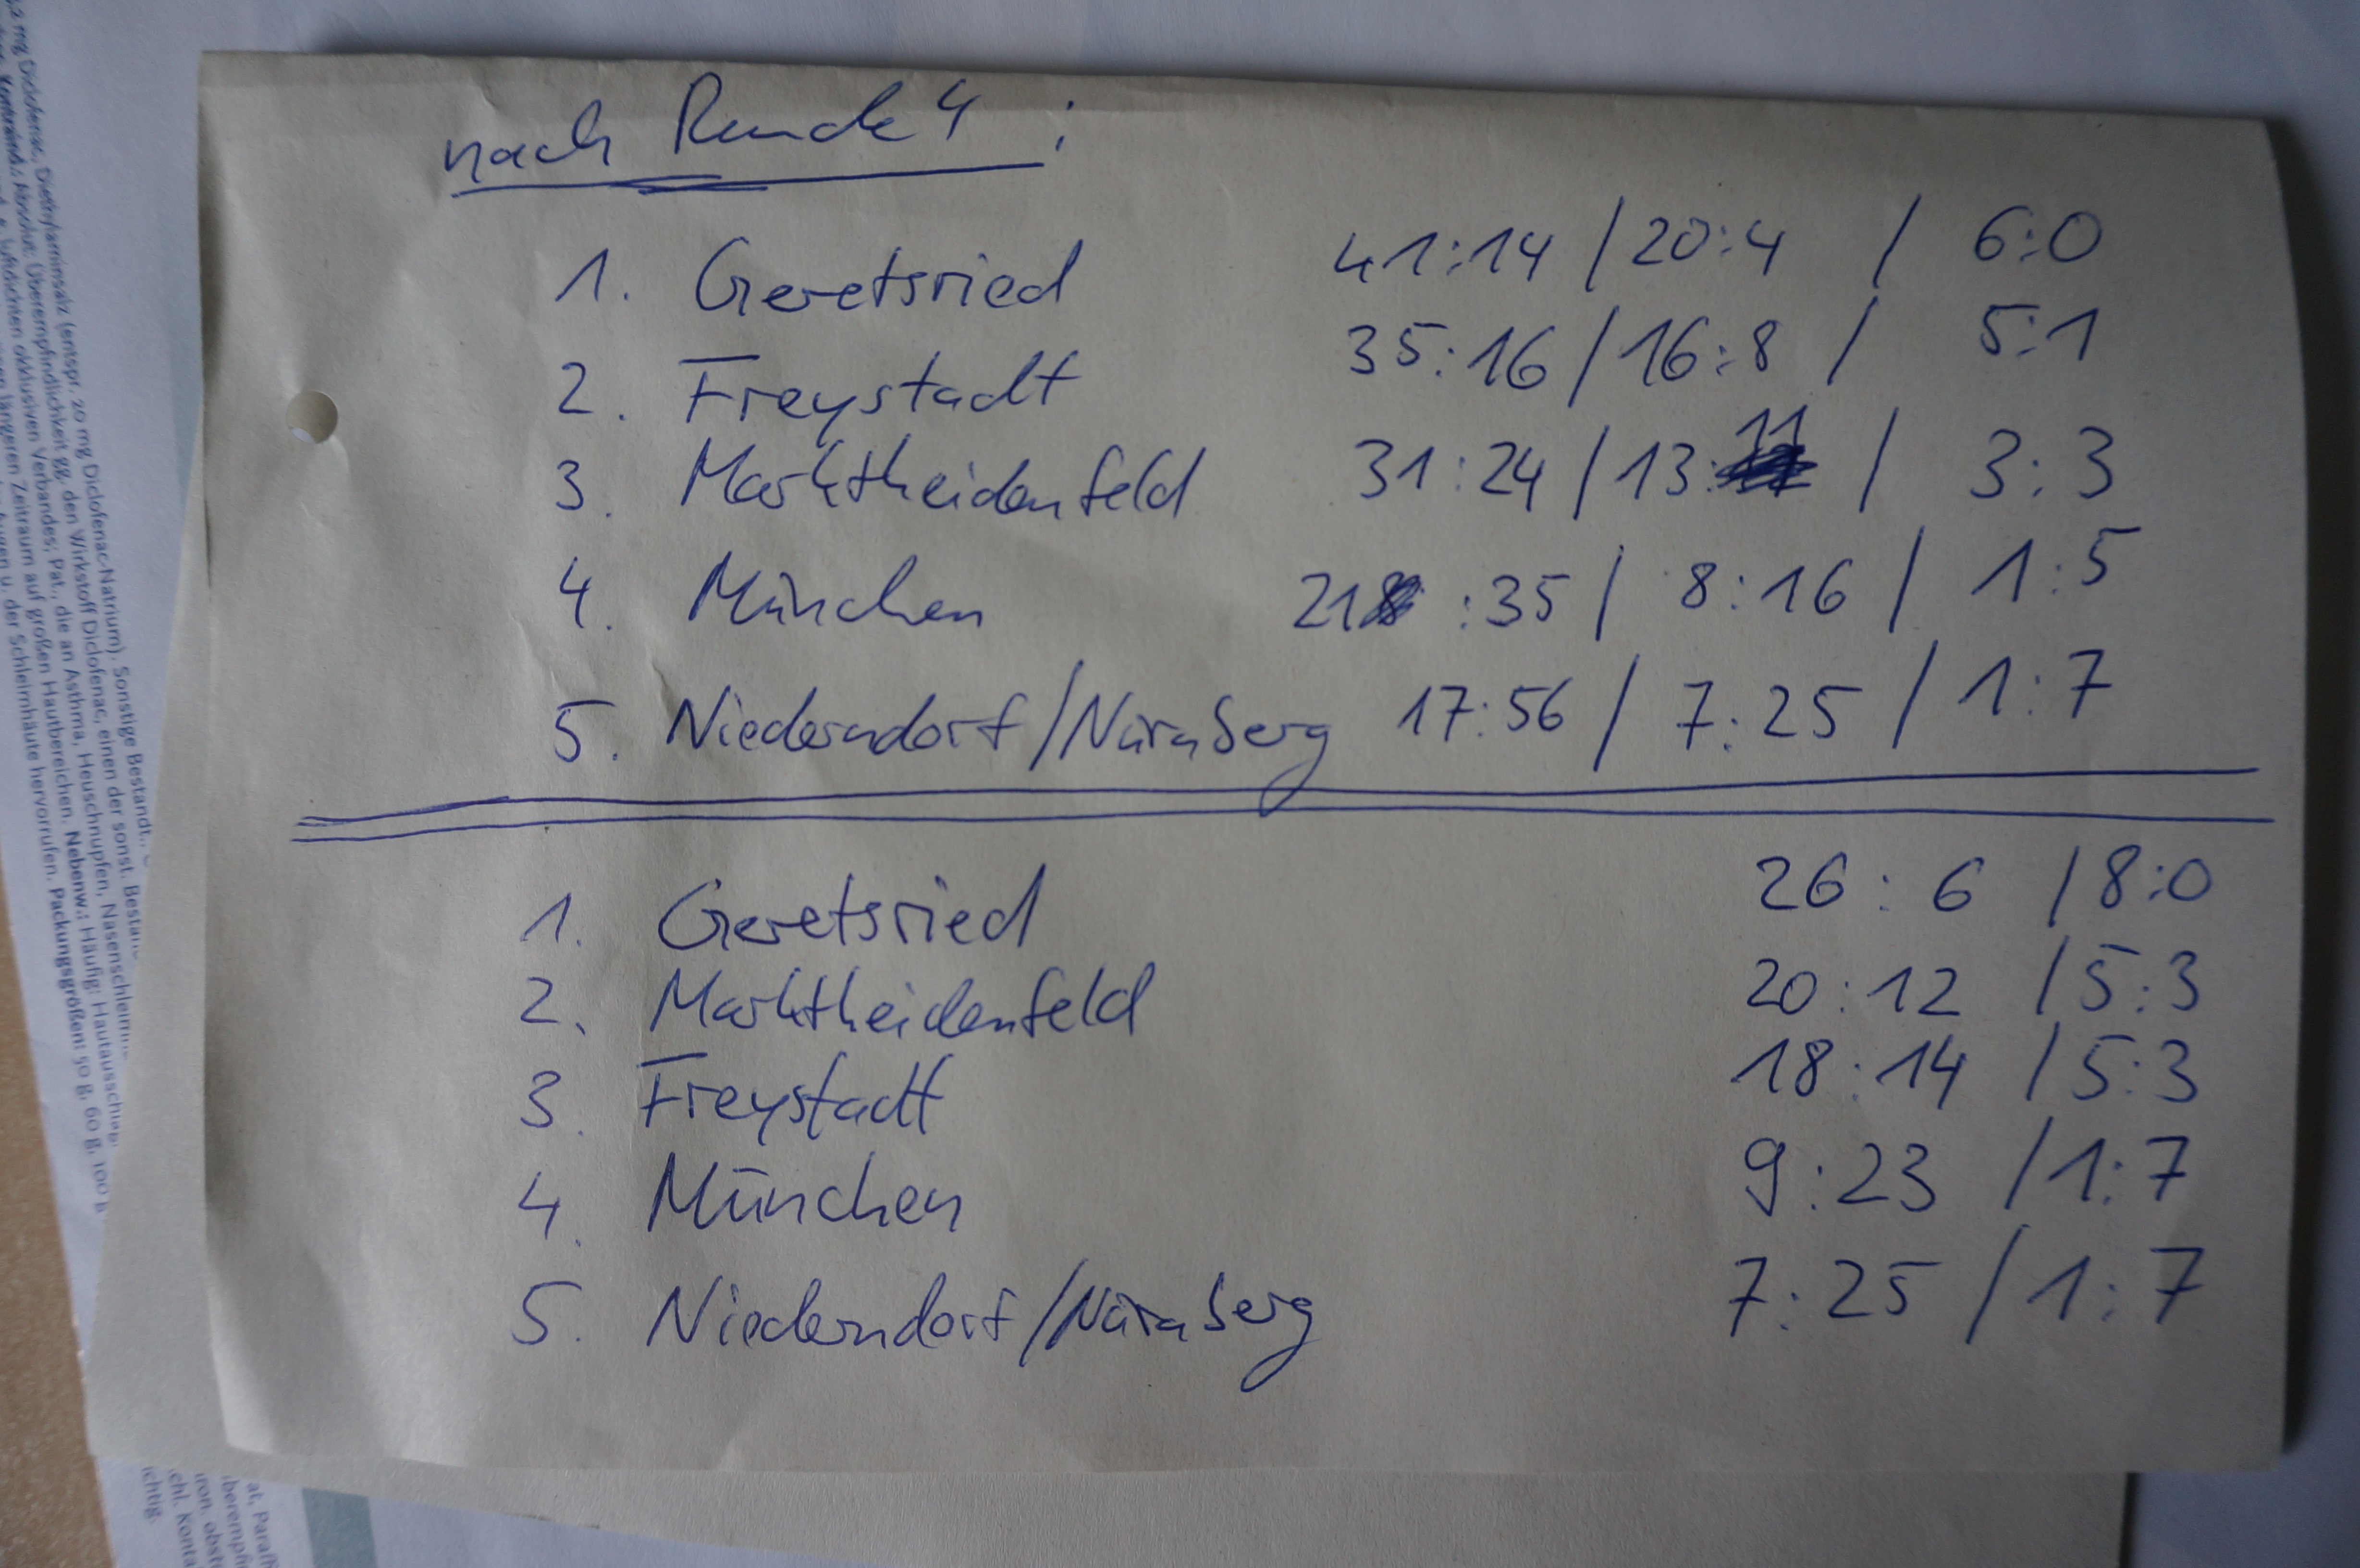 nach Runde 4:
1. Geretsried 41:14 / 20:4 / 6:0
2. Freystadt 35:16 / 16:8 / 5:1
3. Marktheidenfeld 31:24 / 13:11 / 3:3
4. München 21 :35 / 8:16 / 1:5
5. Niederndorf/Nürnberg 17:56 / 7:25 / 1:7
1. Geretsried 26:6 / 8:0
2. Marktheidenfeld 20:12 / 5:3
3. Freystadt 18:14 / 5:3
4. München 9:23 / 1:7
5. Niederndorf/Nürnberg 7:25 / 1:7
mg Diclofenac, Diethylaminsalz (entspr. 20 mg Diclofenac-Natrium). Sonstige Bestandt.
Absolut: Überempfindlichkeit gg. den Wirkstoff Diclofenac, einen der sonst.
okklusiven Verbandes; Pat., die an Asthma, Heuschnupfen, Nasenschleim
längeren Zeitraum auf großen Hautbereichen. Nebenw.: Häufig: Hautausschlag
u. der Schleimhäute hervorrufen. Packungsgrößen: 50 g, 60 g, 100 g